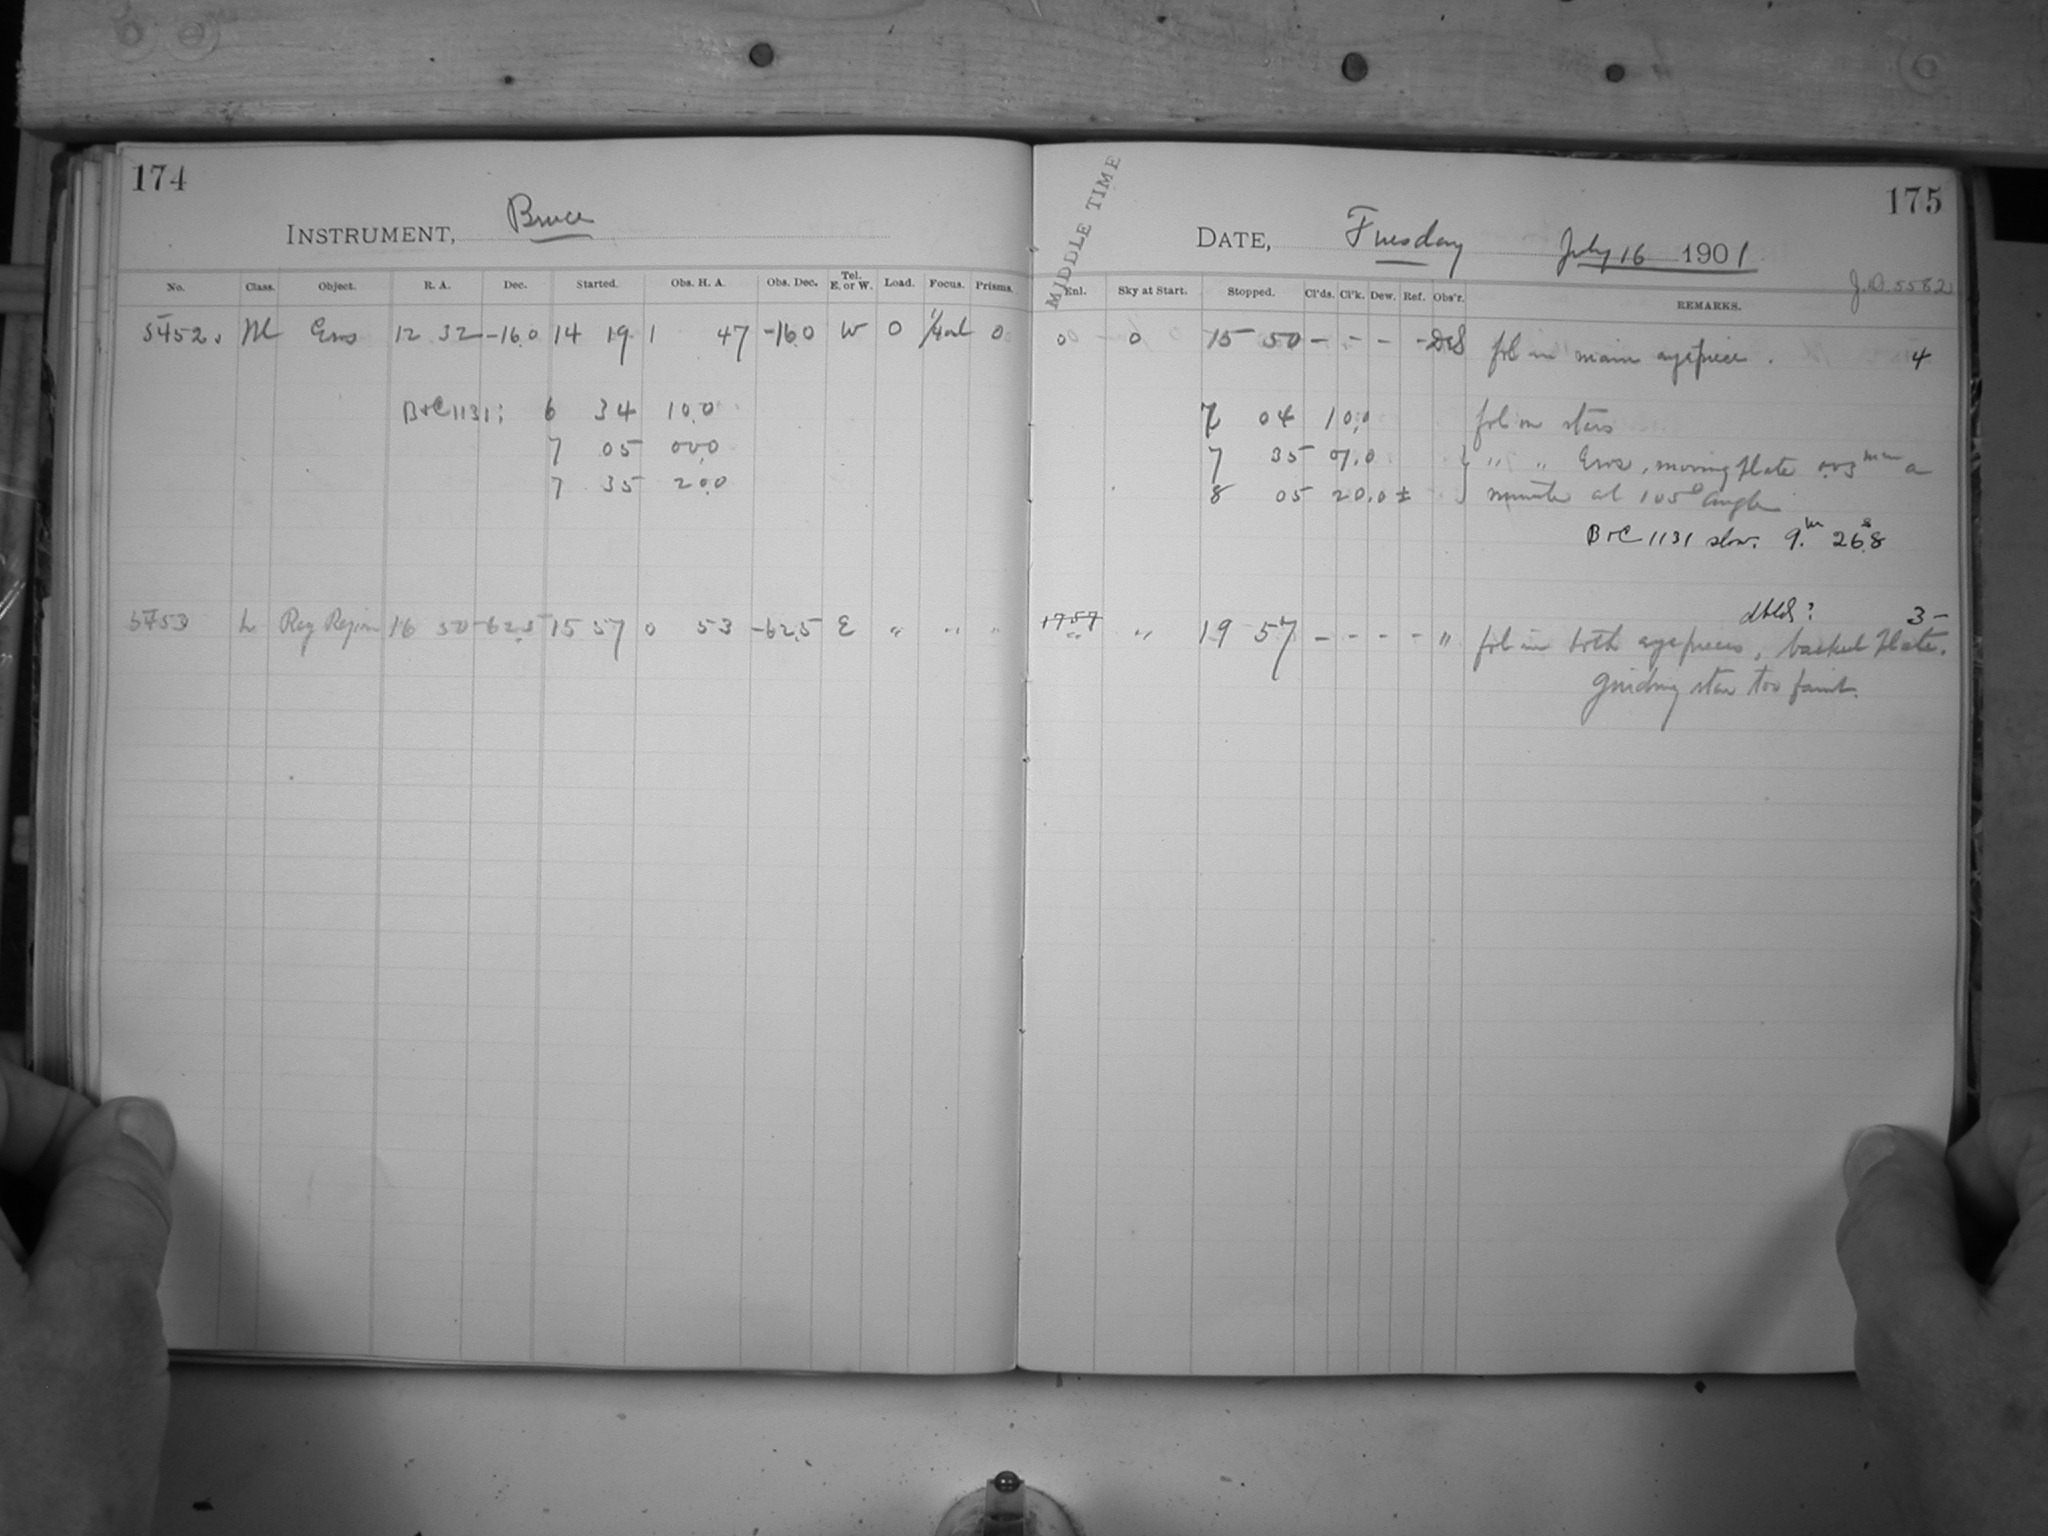 174
INSTRUMENT, Bruce
No. Class. Object. R. A. Dec. Started. Obs. H. A. Obs. Dec. Tel. E. or W. Load. Focus. Prisms.
5452 M Eros 12 32 -16.0 14 19 1 47 -16.0 W 0 0
B&C 1131; 6 34 10.0
7 05 00.0
7 35 20.0
5453 L Reg Region 16 50 -62.5 15 57 0 53 -62.5 E " " "
175
MIDDLE TIME
DATE, Tuesday July 16 1901
J.D. 5582
Enl. Sky at Start. Stopped. Cl'ds. Cl'k. Dew. Ref. Obs'r. REMARKS.
0 0 15 50 - - - - DeS fol in main eyepiece. 4
7 04 10.0 fol on stars
7 35 07.0 " " Eros, moving plate 0.03 mm a
8 05 20.0 ± minute at 105° angle
B&C 1131 slow. 9.m 26.s8
dbld? 3-
1757 " 19 57 - - - - " fol in both eyepieces, backed plate.
Guiding star too faint.